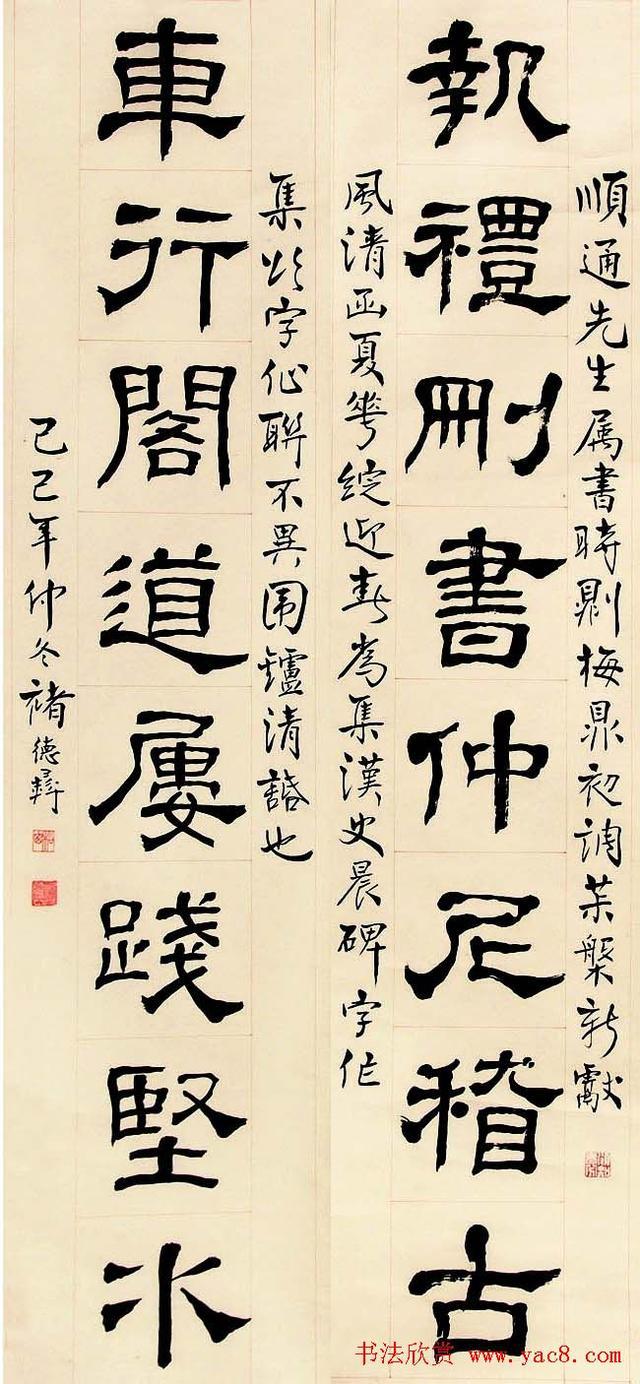 順通先生属書時則梅鼎初調菜槃新獻
執禮刪書仲尼稽古
風清函夏華綻近春為集漢史晨碑字作
集字作聯不異围鑪清話也
車行閣道屢踐堅冰
己巳年仲冬褚德彝
书法欣赏 www.yac8.com